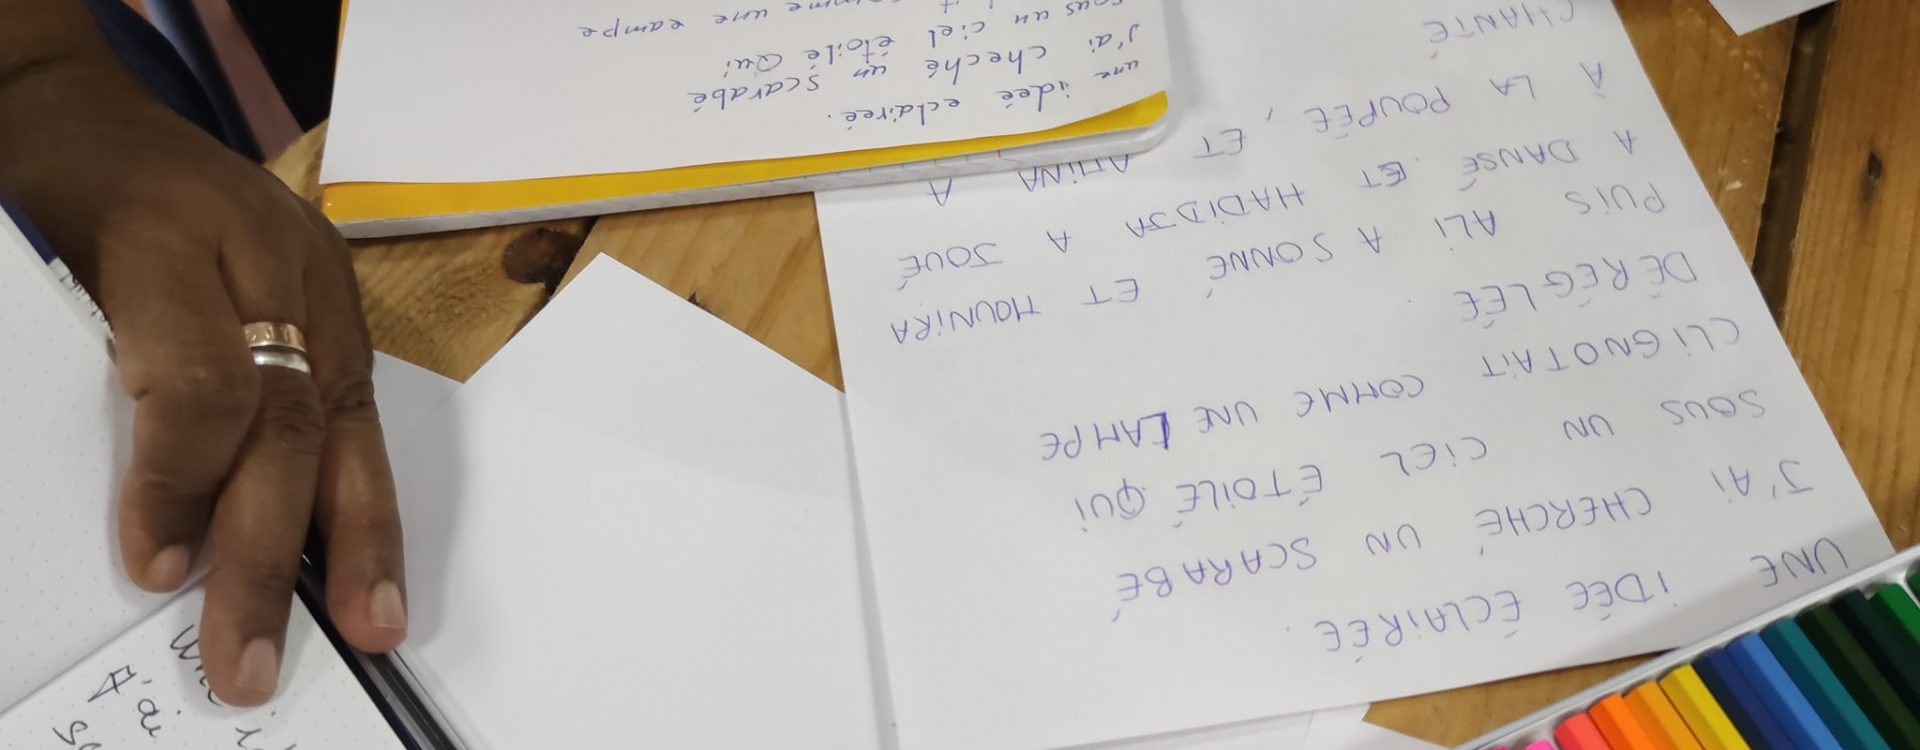 UNE IDÉE ÉCLAIRÉE.
J'AI CHERCHÉ UN SCARABÉ
SOUS UN CIEL ÉTOILÉ QUI
CLIGNOTAIT COMME UNE LAMPE
DÉRÉGLÉE.
PUIS ALI A SONNÉ ET MOUNIRA
A DANSÉ ET HADIDJA A JOUÉ
À LA POUPÉE, ET AMINA A
CHANTÉ
une ideé eclaireé.
J'ai cheché un scarabé
sous un ciel étoilé Qui
comme une lampe
J'ai